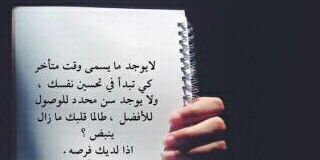 لايوجد ما يسمى وقت متأخر
كي تبدأ في تحسين نفسك ،
ولا يوجد سن محدد للوصول
للأفضل ، طالما قلبك ما زال
ينبض ؟
اذا لديك فرصه .